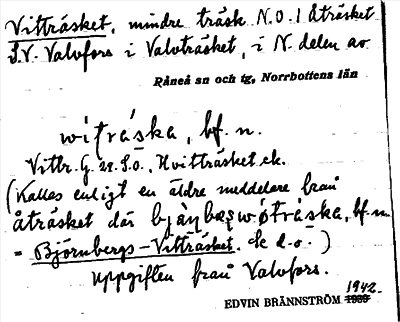 Vitträsket, mindre träsk N.O. I åträsket
S.V. Valvfors i Valvträsket, i N. delen av
Råneå sn och tg, Norrbottens län
witráska, bf. n.
Vittr. G. 21. S.ö., Hvitträsket ek.
(Kallas enligt en äldre meddelare från
åträsket där bjàṇbæṣwøtráska, bf. n.
= Björnbergs-Vitträsket. Ek d.o.)
uppgiften från Valvfors.
1942
EDVIN BRÄNNSTRÖM 1939